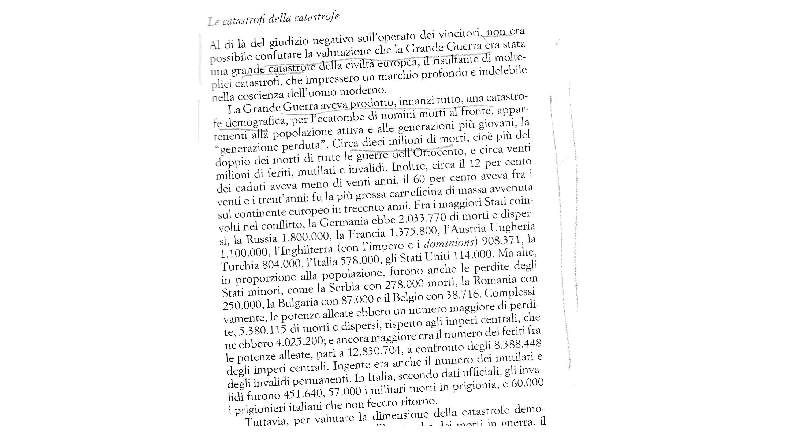 Le catastrofi della catastrofe
Al di là del giudizio negativo sull'operato dei vincitori, non era
possibile confutare la valutazione che la Grande Guerra era stata
una grande catastrofe della civiltà europea, il risultante di molte-
plici catastrofi, che impressero un marchio profondo e indelebile
nella coscienza dell'uomo moderno.
La Grande Guerra aveva prodotto, innanzi tutto, una catastro-
fe demografica, per l'ecatombe di uomini morti al fronte, appar-
tenenti alla popolazione attiva e alle generazioni più giovani, la
"generazione perduta". Circa dieci milioni di morti, cioè più del
doppio dei morti di tutte le guerre dell'Ottocento, e circa venti
milioni di feriti, mutilati e invalidi. Inoltre, circa il 12 per cento
dei caduti aveva meno di venti anni, il 60 per cento aveva fra i
venti e i trent'anni: fu la più grossa carneficina di massa avvenuta
sul continente europeo in trecento anni. Fra i maggiori Stati coin-
volti nel conflitto, la Germania ebbe 2.033.770 di morti e disper-
si, la Russia 1.800.000, la Francia 1.375.800, l'Austria Ungheria
1.100.000, l'Inghilterra (con l'impero e i dominions) 908.371, la
Turchia 804.000, l'Italia 578.000, gli Stati Uniti 114.000. Ma alte,
in proporzione alla popolazione, furono anche le perdite degli
Stati minori, come la Serbia con 278.000 morti, la Romania con
250.000, la Bulgaria con 87.000 e il Belgio con 38.716. Complessi-
vamente, le potenze alleate ebbero un numero maggiore di perdi-
te, 5.380.115 di morti e dispersi, rispetto agli imperi centrali, che
ne ebbero 4.025.200; e ancora maggiore era il numero dei feriti fra
le potenze alleate, pari a 12.830.704, a confronto degli 8.388.448
degli imperi centrali. Ingente era anche il numero dei mutilati e
degli invalidi permanenti. In Italia, secondo dati ufficiali, gli inva-
lidi furono 451.640, 57.000 i militari morti in prigionia, e 60.000
i prigionieri italiani che non fecero ritorno.
Tuttavia, per valutare la dimensione della catastrofe demo-
dei morti in guerra, il